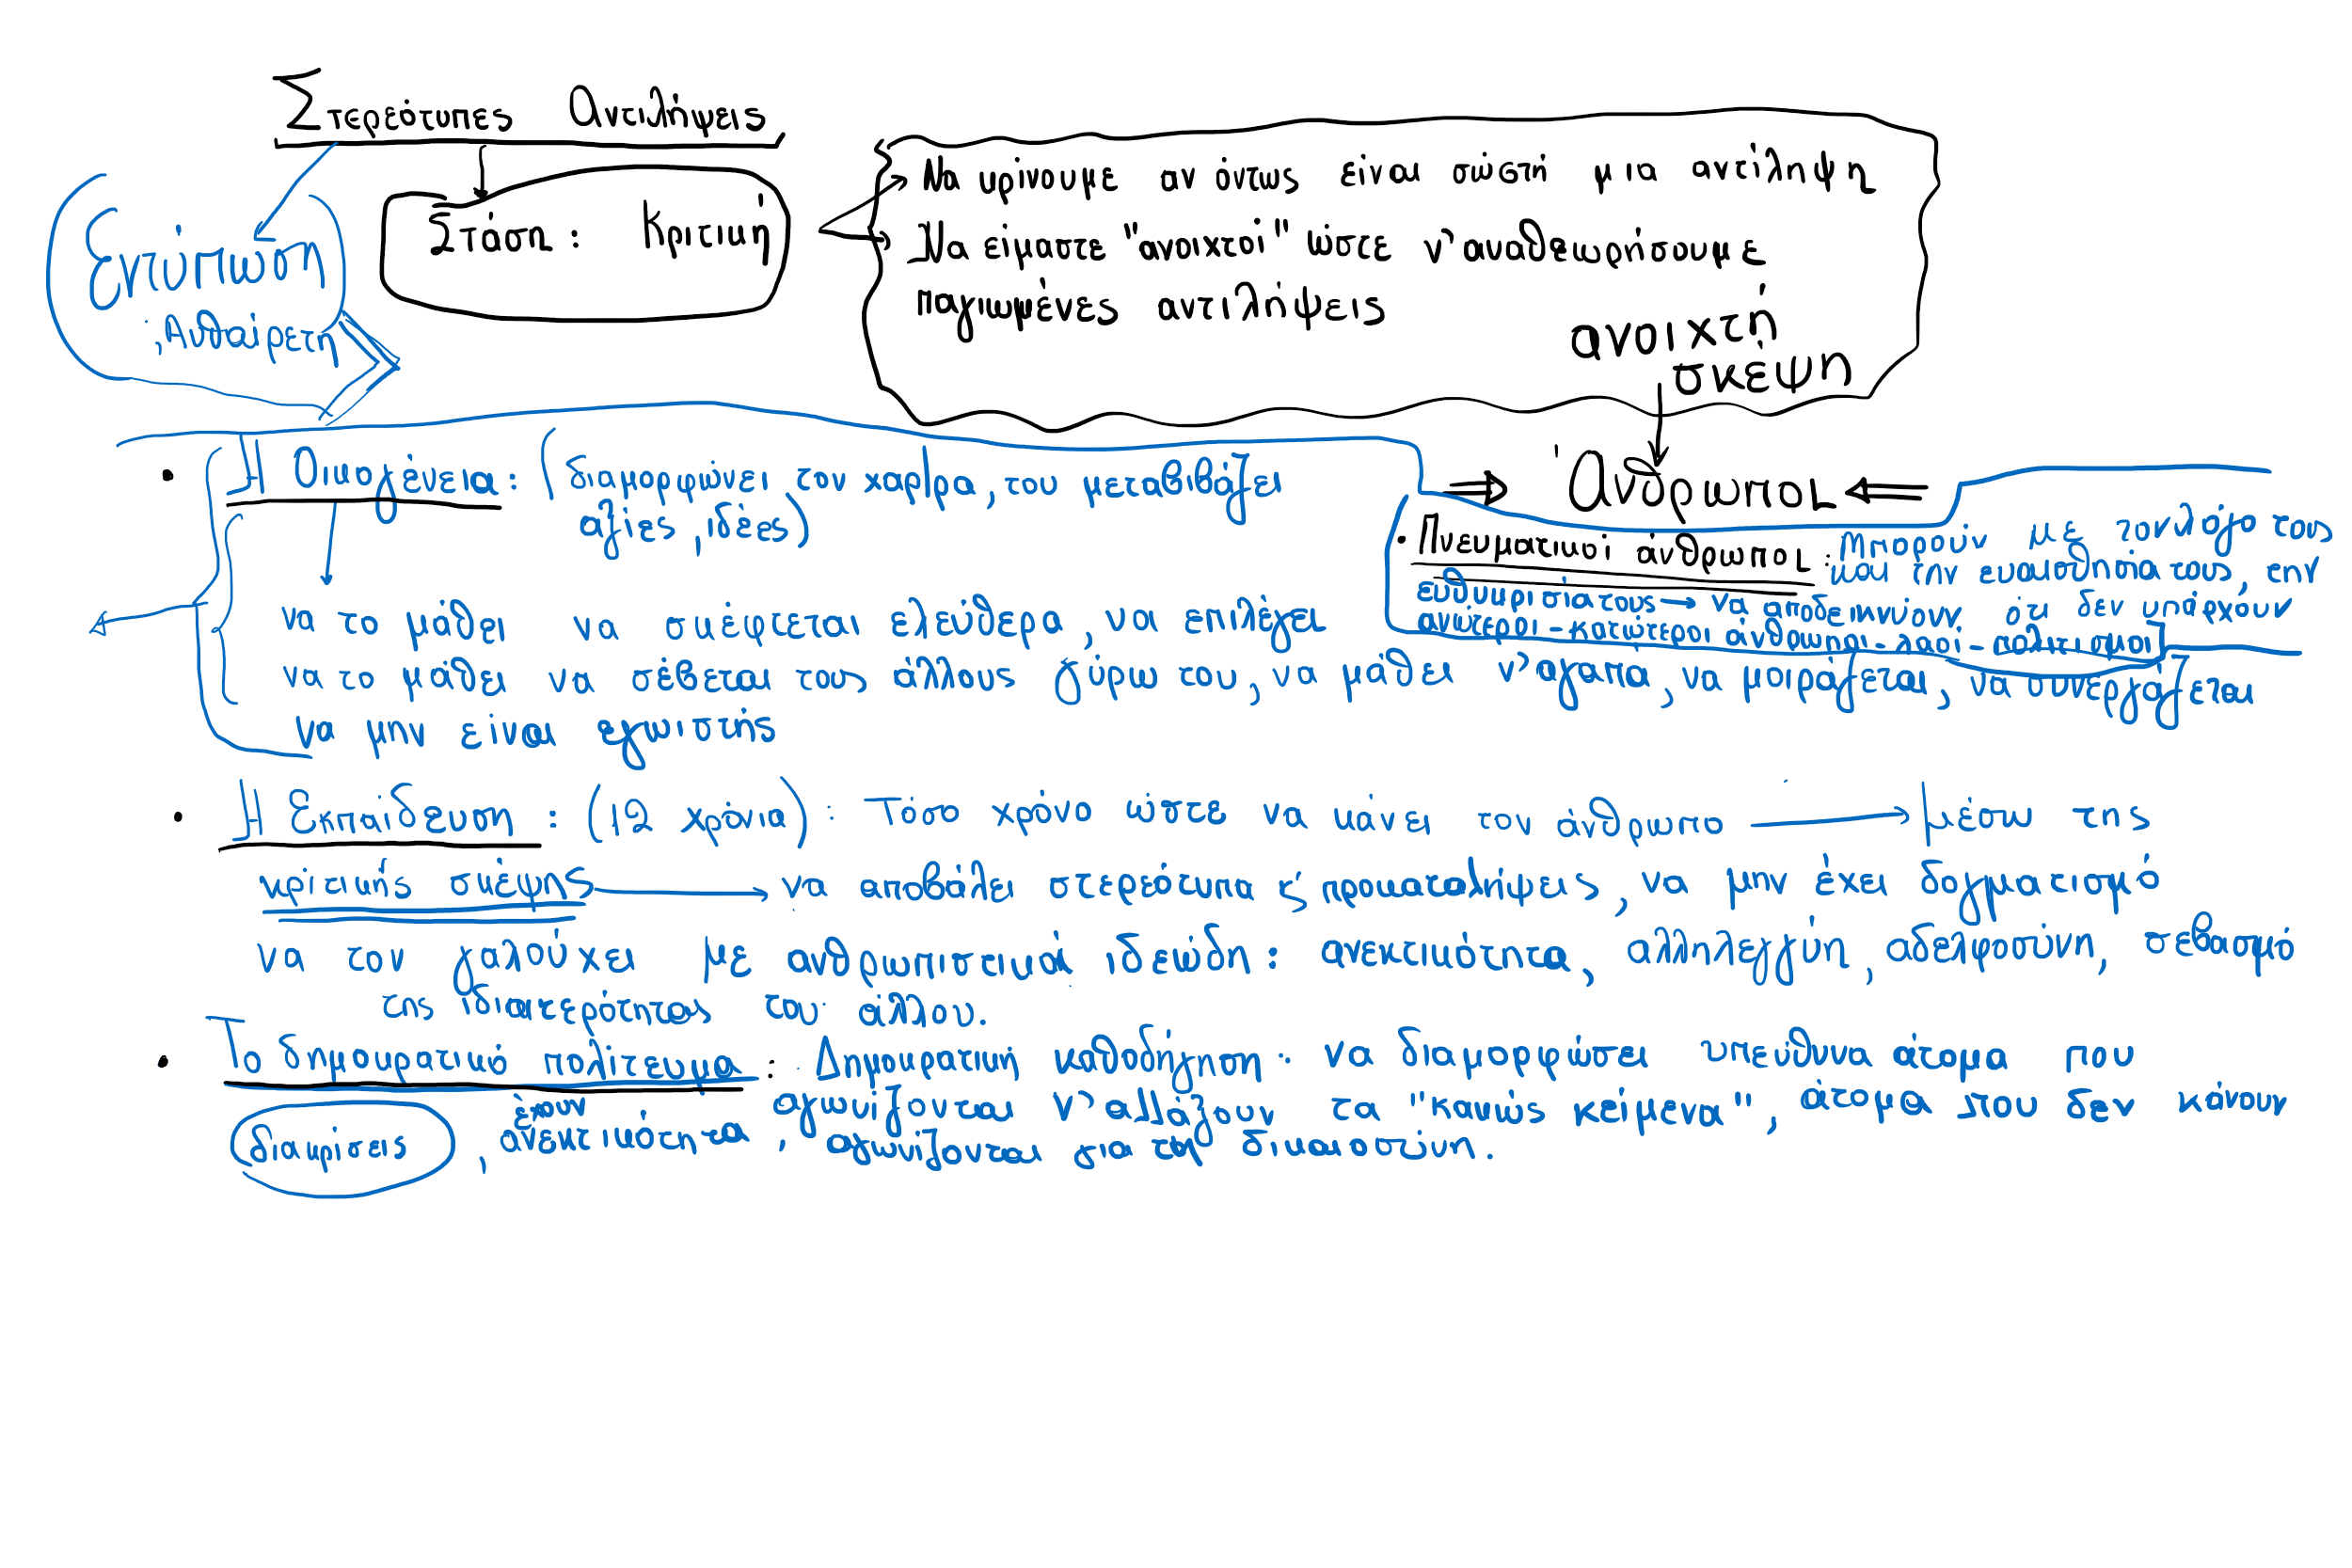 Στερεότυπες Αντιλήψεις
Εντύπωση
Αυθαίρετη
Στάση: Κριτική
Να κρίνουμε αν όντως είναι σώστή μια αντίληψη
Να είμαστε "ανοιχτοί" ώστε ν'αναθεωρήσουμε
παγιωμένες αντιλήψεις
ανοιχτή
σκέψη
⇒ Άνθρωποι ⇐
• Η Οικογένεια: (διαμορφώνει τον χαρ/ρα, του μεταβιβάζει
αξίες, ιδέες)
• Πνευματικοί άνθρωποι: Μπορούν με τον λόγο τους
και την ευαισθησία τους, την
ευθυκρισία τους → να αποδεικνύουν ότι δεν υπάρχουν
ανώτεροι - κατώτεροι άνθρωποι - λαοί - πολιτισμοί
να το μάθει να σκέφτεται ελεύθερα, να επιλέγει
να το μάθει να σέβεται τους άλλους γύρω του, να μάθει ν'αγαπά, να μοιράζεται, να συνεργάζεται
να μην είναι εγωιστής
• Η Εκπαίδευση: (12 χρόνια): Τόσο χρόνο ώστε να κάνει τον άνθρωπο → μέσω της
κριτικής σκέψης → να αποβάλει στερεότυπα ς' προκαταλήψεις, να μην έχει δογματισμό
να τον γαλούχει με ανθρωπιστικά ιδεώδη: ανεκτικότητα, αλληλεγγύη, αδελφοσύνη, σεβασμό
της ιδιαιτερότητας του άλλου.
• Το δημοκρατικό πολίτευμα: Δημοκρατική καθοδήγηση: να διαμορφώσει υπεύθυνα άτομα που
αγωνίζονται ν'αλλάξουν τα "κακώς κείμενα", άτομα που δεν κάνουν
διακρίσεις, έχουν ανεκτικότητα, αγωνίζονται για τη δικαιοσύνη.